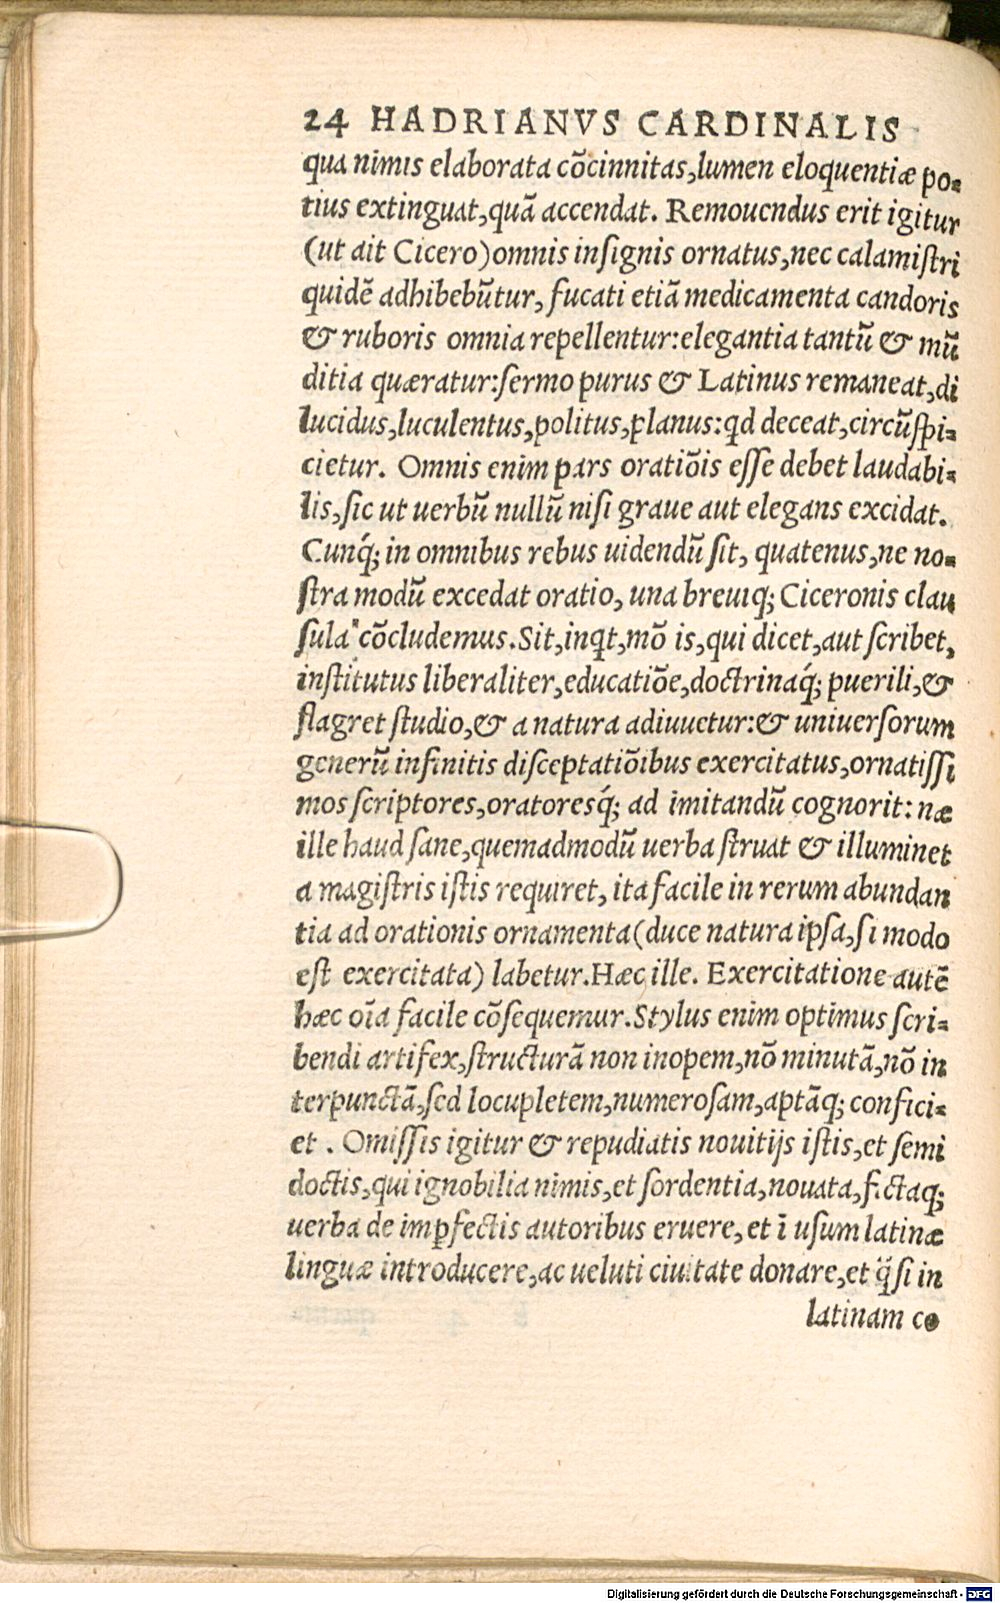 24 HADRIANVS CARDINALIS
qua nimis elaborata cōcinnitas,lumen eloquentiæ po-
tius extinguat,quā accendat. Remouendus erit igitur
(ut ait Cicero)omnis insignis ornatus,nec calamistri
quidē adhibebūtur, fucati etiā medicamenta candoris
& ruboris omnia repellentur:elegantia tantū & mū
ditia quæratur:sermo purus & Latinus remaneat,di
lucidus,luculentus,politus,planus:qd deceat,circūspi-
cietur. Omnis enim pars oratiōis esse debet laudabi-
lis,sic ut uerbū nullū nisi graue aut elegans excidat.
Cunq́; in omnibus rebus uidendū sit, quatenus,ne no-
stra modū excedat oratio, una breuiq; Ciceronis clau
sula cōcludemus.Sit,inqt,mō is,qui dicet,aut scribet,
institutus liberaliter,educatiōe,doctrinaq́; puerili,&
flagret studio,& a natura adiuuetur:& uniuersorum
generū infinitis disceptatiōibus exercitatus,ornatissi
mos scriptores,oratoresq́; ad imitandū cognorit: næ
ille haud sane,quemadmodū uerba struat & illuminet
a magistris istis requiret, ita facile in rerum abundan
tia ad orationis ornamenta(duce natura ipsa,si modo
est exercitata) labetur.Hæc ille. Exercitatione autē
hæc oīa facile cōsequemur.Stylus enim optimus scri-
bendi artifex,structurā non inopem,nō minutā,nō in
terpunctā,sed locupletem,numerosam,aptāq; confici-
et . Omissis igitur & repudiatis nouitijs istis,et semi
doctis,qui ignobilia nimis,et sordentia,nouata,fictaq;
uerba de imꝑfectis autoribus eruere,et ī usum latinæ
linguæ introducere,ac ueluti ciuitate donare,et q̈si in
latinam co
Digitalisierung gefördert durch die Deutsche Forschungsgemeinschaft - DFG